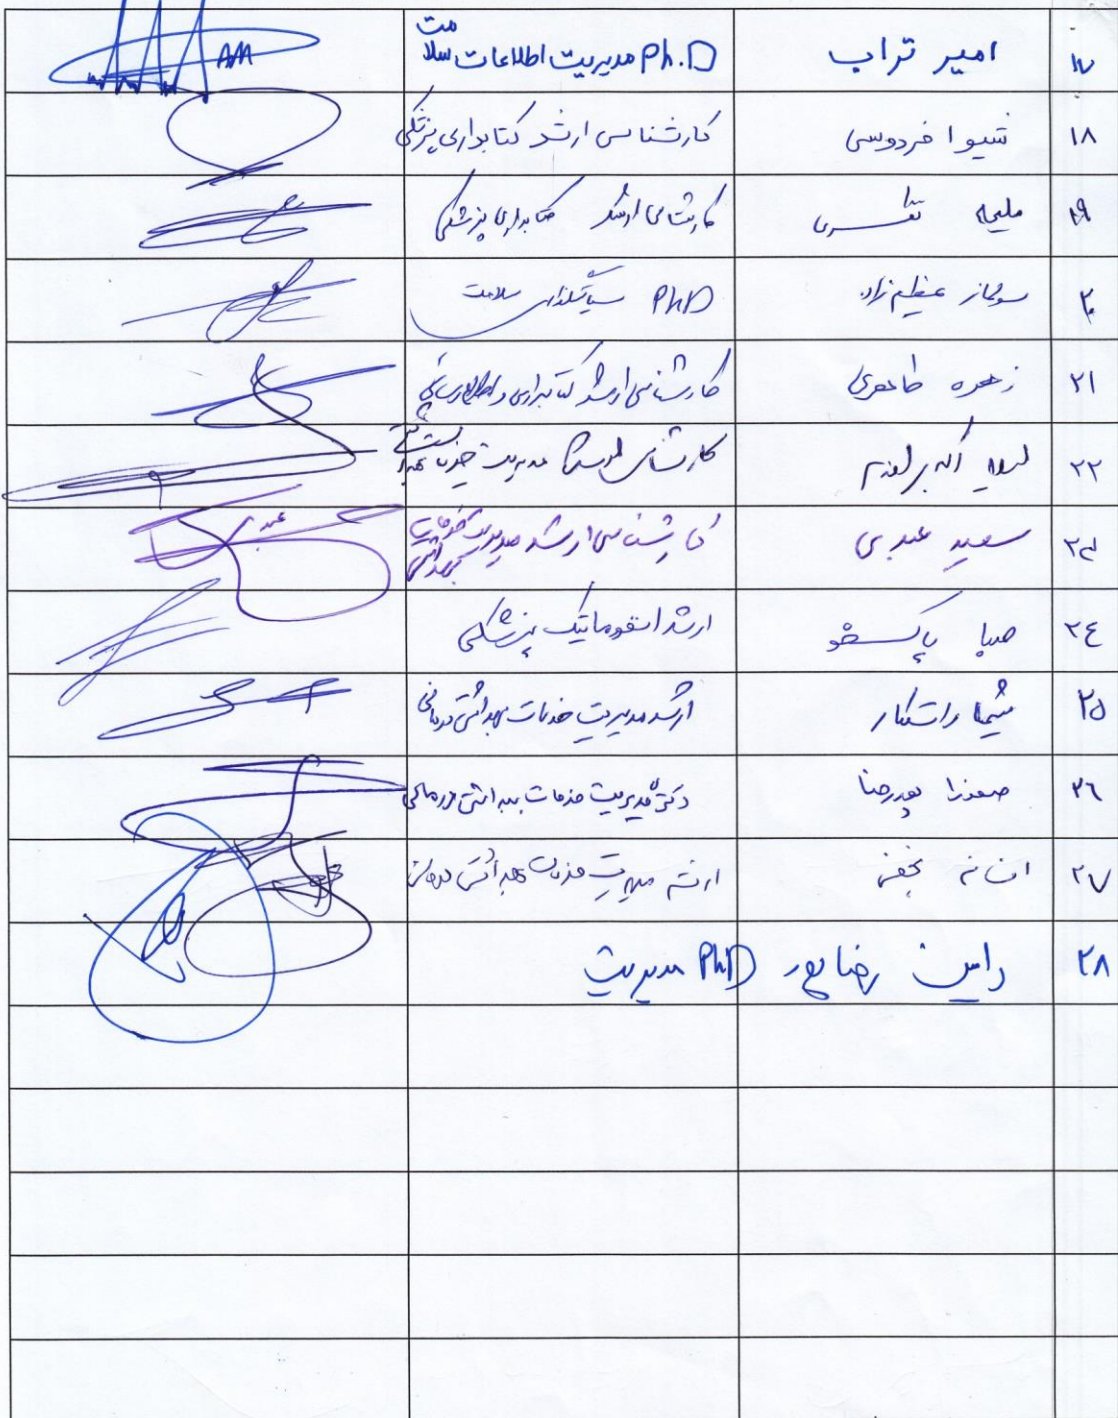 ۱۷ امیر تراب Ph.D مدیریت اطلاعات سلامت
۱۸ شیوا فردوسی کارشناس ارشد کتابداری پزشکی
۱۹ ملیحه کارشناس ارشد کتابداری پزشکی
۲۰ سولماز عظیم‌زاده PhD سیاستگذاری سلامت
۲۱ زهره طاهری کارشناسی ارشد کتابداری و اطلاع رسانی
۲۲ کارشناس مدیریت
۲۳ سعید عبدی کارشناسی ارشد مدیریت خدمات بهداشتی عبدی
۲۴ صبا پاکسخو ارشد انفورماتیک پزشکی
۲۵ شیما راستکار ارشد مدیریت خدمات بهداشتی درمانی
۲۶ صفورا پوررضا دکتری مدیریت خدمات بهداشتی درمانی
۲۷ افسانه نجفی ارشد مدیریت خدمات بهداشتی درمانی
۲۸ رامین رضاپور PhD مدیریت